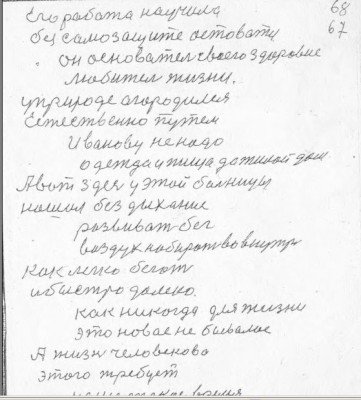 Его работа научила 68
без самозащите остовати 67
он основател своего здоровие
любител жизни.
у природе огородился
Естественно путем
Иванову не надо
одежда и пища да жилой дом
А вот здес у этой болницы
нашол без дыхание
развиват бег
воздух набират во внутр
Как легко бегат
и бистро далеко.
как никогда для жизни
это новое не бывалое
А жизн человекова
этого требует